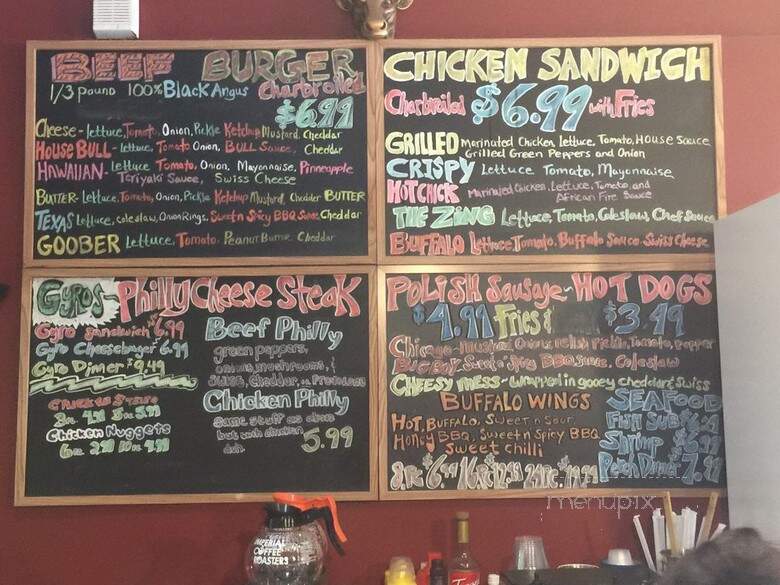 BEEF BURGER
1/3 pound 100% Black Angus Charbroiled
$6.99
Cheese - lettuce, Tomato, Onion, Pickle Ketchup Mustard, Cheddar
HOUSE BULL - lettuce, Tomato Onion, BULL Sauce, Cheddar
HAWAIIAN - Lettuce Tomato, Onion, Mayonnaise, Pinneapple
Teriyaki Sauce, Swiss Cheese
BUTTER - Lettuce, Tomato, Onion, Pickle Ketchup Mustard, Cheddar BUTTER
TEXAS Lettuce, coleslaw, Onion Rings, Sweet n Spicy BBQ Sauce Cheddar
GOOBER Lettuce, Tomato, Peanut Butter Cheddar
CHICKEN SANDWICH
Charbroiled $6.99 with Fries
GRILLED Marinated Chicken, Lettuce, Tomato, House Sauce
Grilled Green Peppers and Onion
CRISPY Lettuce Tomato, Mayonnaise,
HOT CHICK Marinated Chicken, Lettuce, Tomato, and
African Fire Sauce
THE ZING Lettuce, Tomato, Coleslaw, Chef Sauce
BUFFALO Lettuce Tomato, Buffalo Sauce Swiss Cheese
GYROS - Philly Cheese Steak
Gyro Sandwich 6.99
Gyro Cheeseburger 6.99
Gyro Dinner $9.49
Chicken
Chicken Nuggets
Beef Philly
green peppers,
onions, mushrooms, &
Swiss, Cheddar, or Provolone
Chicken Philly
same stuff as above
but with chicken
duh. 5.99
POLISH Sausage - HOT DOGS
$4.99 Fries & $3.99
Chicago - Mustard Onions, relish Pickle, Tomato, Pepper
Sweet n Spicy BBQ Sauce, Coleslaw
CHEESY MESS - Wrapped in gooey cheddar & Swiss
BUFFALO WINGS
Hot, Buffalo, Sweet n Sour
Honey BBQ, Sweet n Spicy BBQ
Sweet chilli
8 Pc $6.99 16 Pc 24 Pc
SEAFOOD
Fish Sub
Shrimp
Perch Dinner
IMPERIAL
COFFEE
ROASTERS
menupix